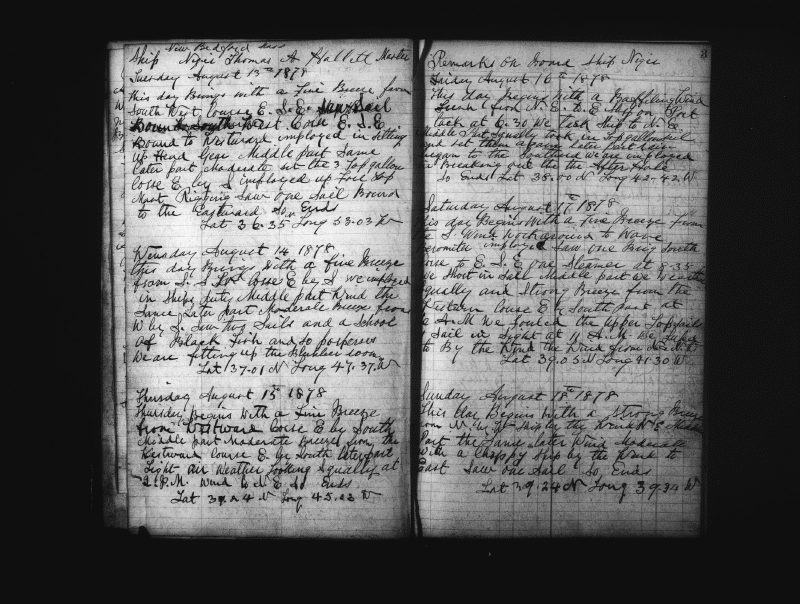 New Bedford
Ship Niger Thomas A Hallett Master
Tuesday August 13th 1878
this day Begins with a Fine Breeze from
South West Course E. S. E.
Bound South East Coarse E. S. E
Bound to Westward employed in setting
up Head Gear Middle part Same
later part Moderate set the 3 Top gallon
Course E by S employed up Fore top
Mast Rigging Saw one Sail Bound
to the Eastward So Ends
Lat 36.35 Long 53.03 W
Wensday August 14 1878
this day Begins With a fine Breeze
from S. S. W. Course E by S we employed
in Ships duty Middle part Wind the
Same Later part Moderate Breeze from
W by S. Saw two Sails and a School
of Black Fish and so porpoises
We are fitting up the Blubber room
Lat 37.01 N Long 47.37 W
Thursday August 15th 1878
Thursday Begins With a Fine Breeze
from Westward Course E by South
Middle part Moderate Breeze from the
Westward Course E by South later part
Light air Weather looking squally at
2 P.M. Wind to N E So Ends
Lat 37.24 N Long 45.23 W
3
Remarks on Board Ship Niger
Friday August 16th 1878
This day Begins With a Baffling Wind
Fresh from N. E. to E. Ship on Port
tack at 6.30 We tack Ship to N. E.
Middle Part Squally took in Topgallant Sail
and set them again Later part
began to the Southard We are employed
in Breaking out the After hole
So Ends Lat 38.00 N Long 42.42 W
Saturday August 17th 1878
this day Begins With a Fine Breeze from
S Wind Work around to Wave
employed Saw one Brig South
Course to E. S. E one Steamer at 5.35
We Short in Sail Middle part We
Squally and Strong Breeze from the
Western Course E by South part at
A.M We furled the Upper Topsails
Sail in Sight at 11 A.M. We
to By the Wind the Wind from
Lat 39.05 N Long 41.30 W
Sunday August 18th 1878
This day Begins with a Strong Breeze
from N. by W Ship by the Wind N E Middle
Part the Same later Wind Moderate
With a Choppy Ship by the Wind to
East Saw one Sail So Ends
Lat 39.24 N Long 39.34 W